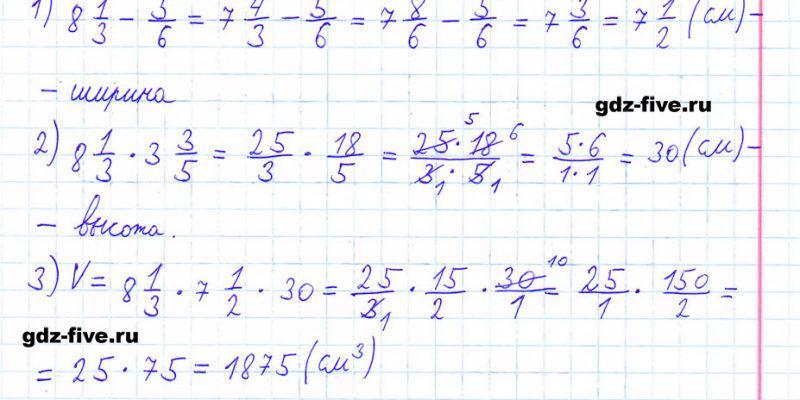 1) 8 1/3 - 5/6 = 7 4/3 - 5/6 = 7 8/6 - 5/6 = 7 3/6 = 7 1/2 (см) -
- ширина
gdz-five.ru
2) 8 1/3 · 3 3/5 = 25/3 · 18/5 = 25 5 · 18 6 / 3 1 · 5 1 = 5·6/1·1 = 30 (см) -
- высота.
3) V = 8 1/3 · 7 1/2 · 30 = 25/3 1 · 15/2 · 30 10/1 = 25/1 · 150/2 =
gdz-five.ru
= 25 · 75 = 1875 (см³)